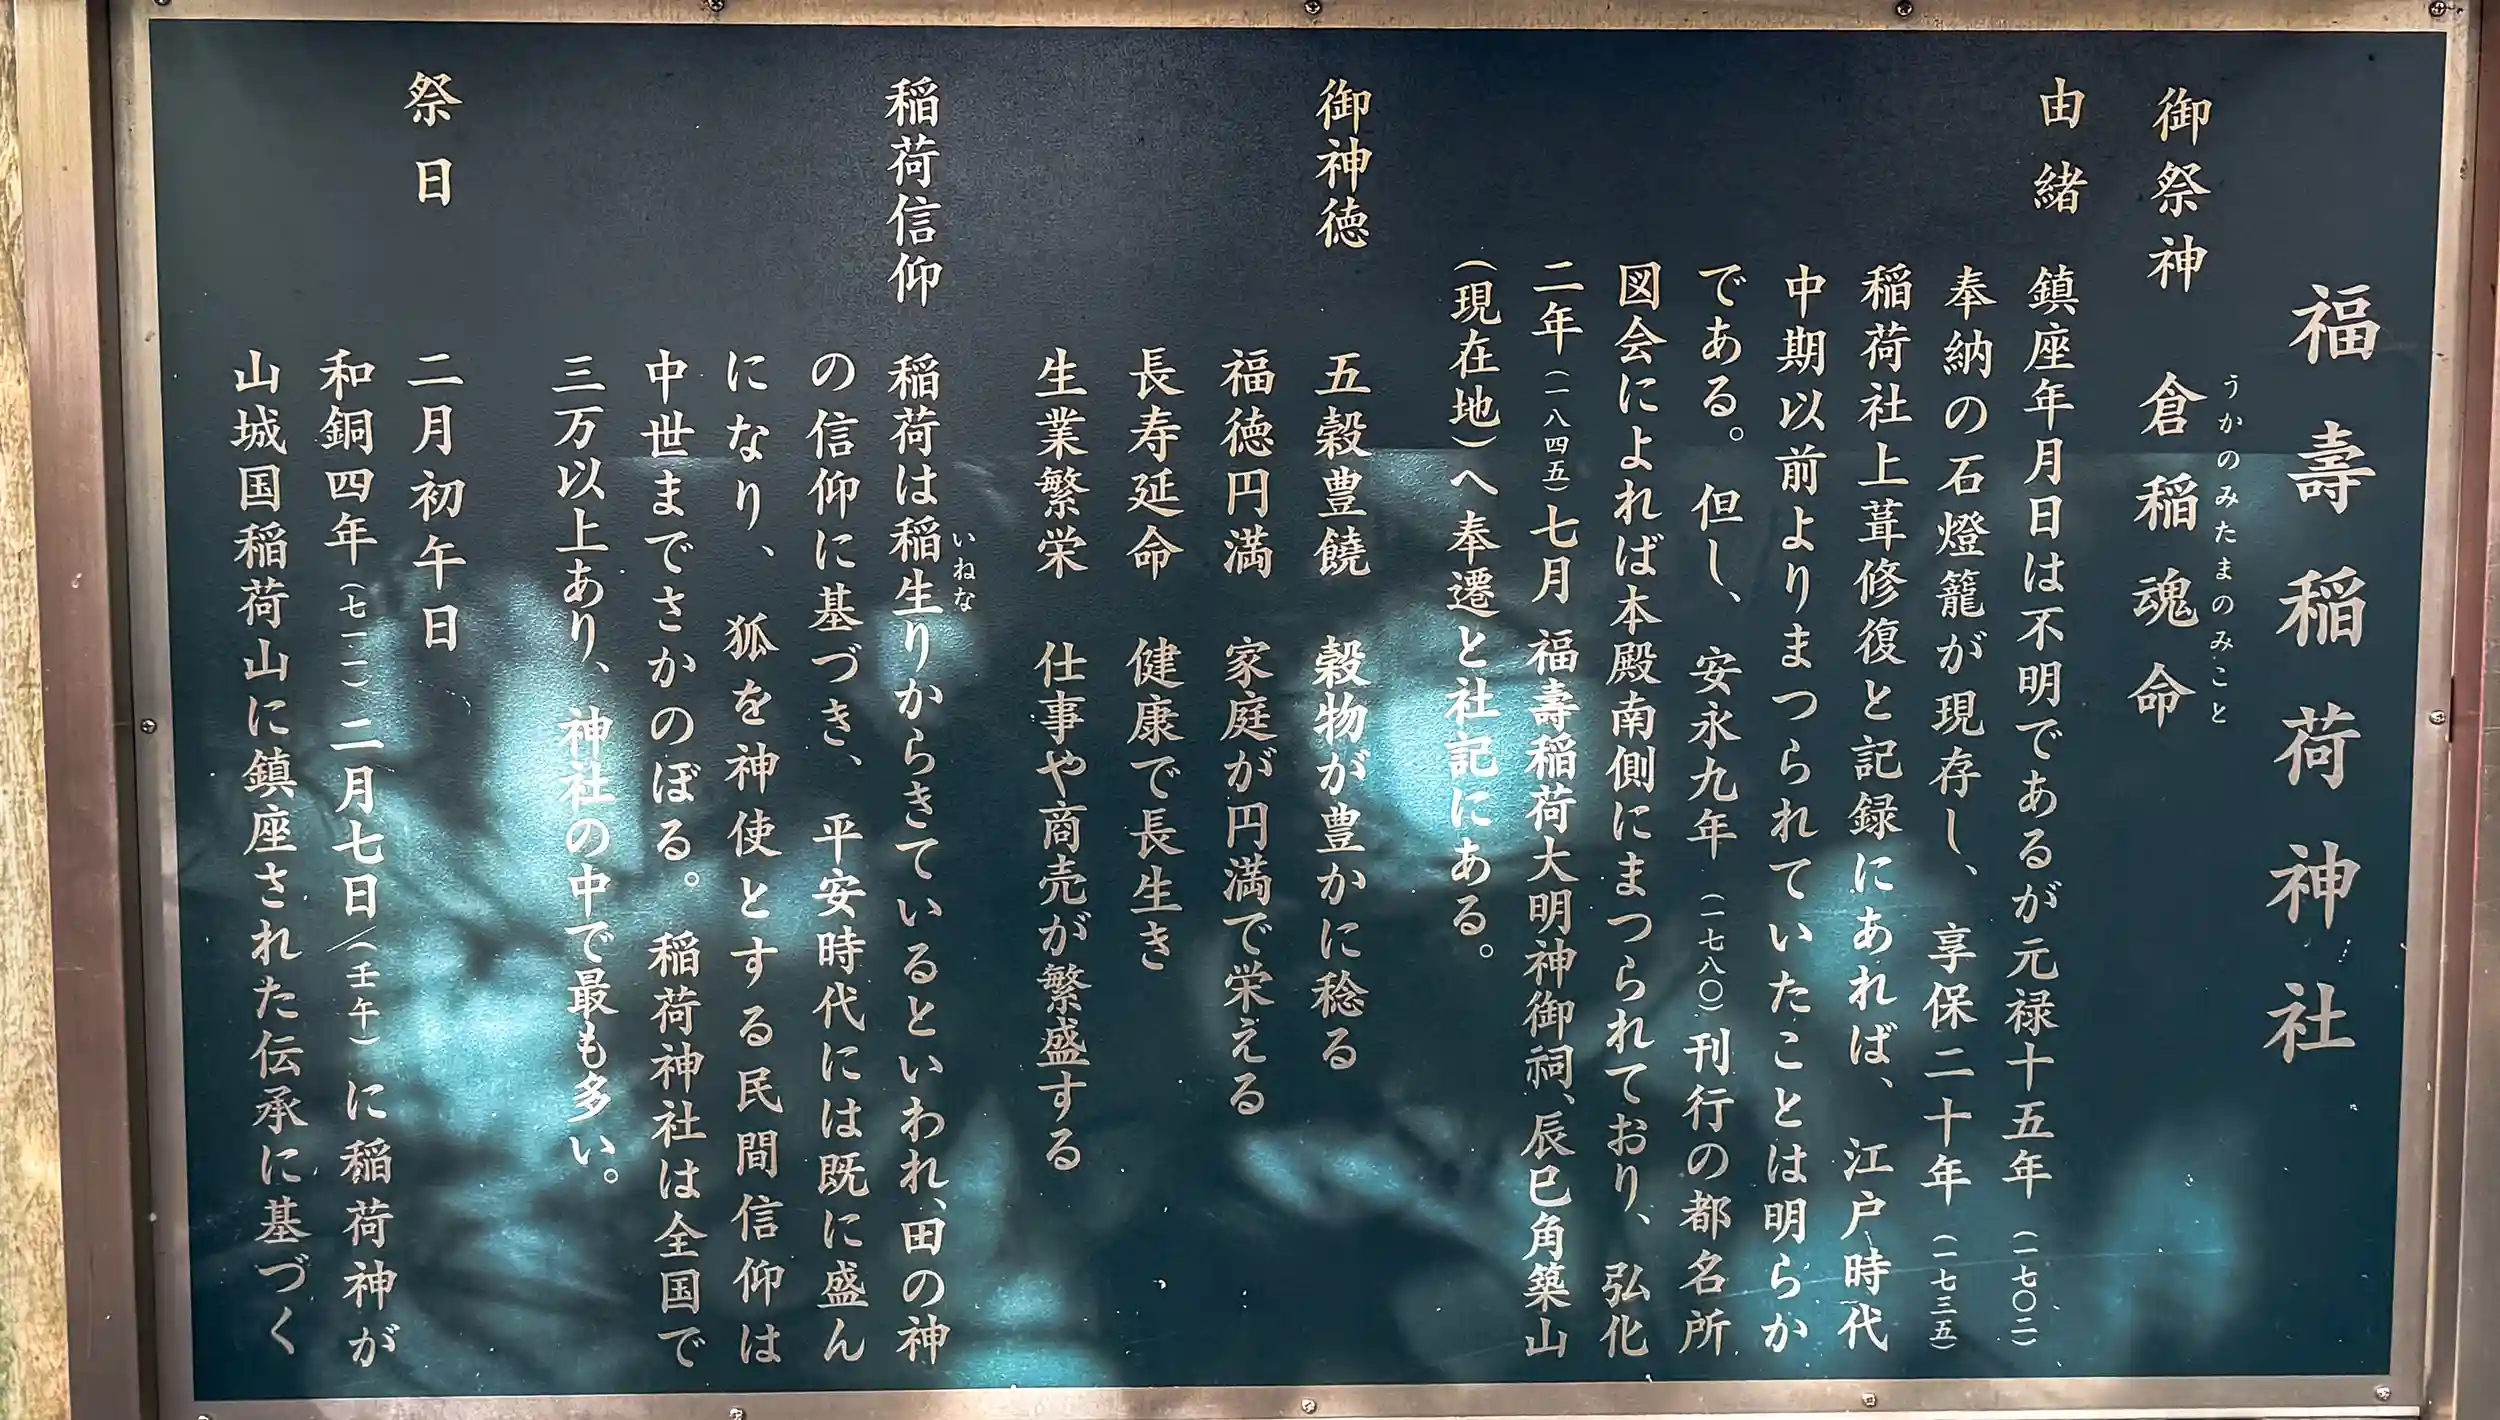 福壽稲荷神社
御祭神 倉稲魂命
うかのみたまのみこと
由緒 鎮座年月日は不明であるが元禄十五年(一七〇二)
奉納の石燈籠が現存し、享保二十年(一七三五)
稲荷社上葺修復と記録にあれば、江戸時代
中期以前よりまつられていたことは明らか
である。但し、安永九年(一七八〇)刊行の都名所
図会によれば本殿南側にまつられており、弘化
二年(一八四五)七月福壽稲荷大明神御祠、辰巳角築山
(現在地)へ奉遷と社記にある。
御神徳 五穀豊饒 穀物が豊かに稔る
福徳円満 家庭が円満で栄える
長寿延命 健康で長生き
生業繁栄 仕事や商売が繁盛する
稲荷信仰 稲荷は稲生りからきているといわれ、田の神
いねな
の信仰に基づき、平安時代には既に盛ん
になり、狐を神使とする民間信仰は
中世までさかのぼる。稲荷神社は全国で
三万以上あり、神社の中で最も多い。
祭日 二月初午日
和銅四年(七一一)二月七日/(壬午)に稲荷神が
山城国稲荷山に鎮座された伝承に基づく